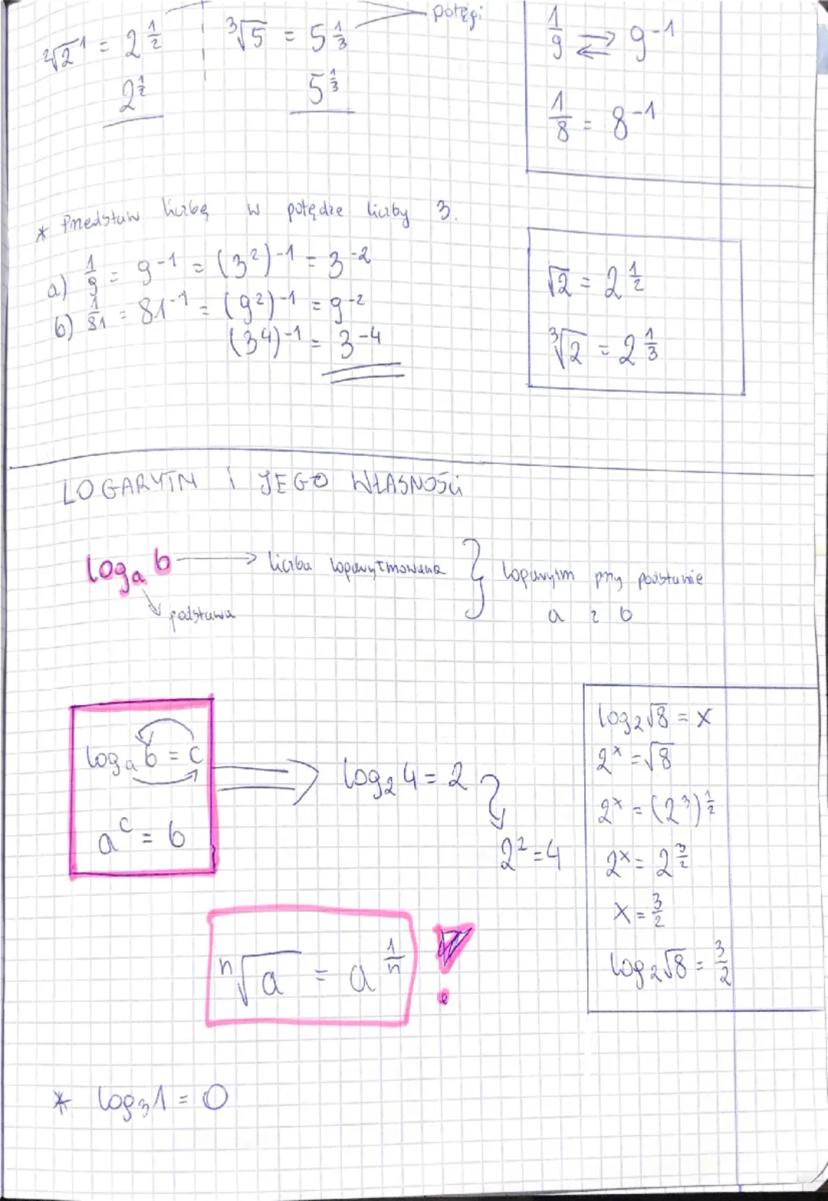 ²√2¹ = 2^(1/2)   ³√5 = 5^(1/3)   potęgi
2^(1/2)   5^(1/3)
1/9 ⇄ 9⁻¹
1/8 = 8⁻¹
* Przedstaw liczbę w potędze liczby 3.
a) 1/9 = 9⁻¹ = (3²)⁻¹ = 3⁻²
b) 1/81 = 81⁻¹ = (9²)⁻¹ = 9⁻²
(3⁴)⁻¹ = 3⁻⁴
√2 = 2^(1/2)
³√2 = 2^(1/3)
LOGARYTM I JEGO WŁASNOŚCI
logₐ b → liczba logarytmowana } logarytm przy podstawie
podstawa   a z b
logₐ b = c ⇒ log₂ 4 = 2
aᶜ = b   2² = 4
log₂√8 = x
2ˣ = √8
2ˣ = (2³)^(1/2)
2ˣ = 2^(3/2)
x = 3/2
log₂√8 = 3/2
ⁿ√a = a^(1/n) !
* log₃1 = 0